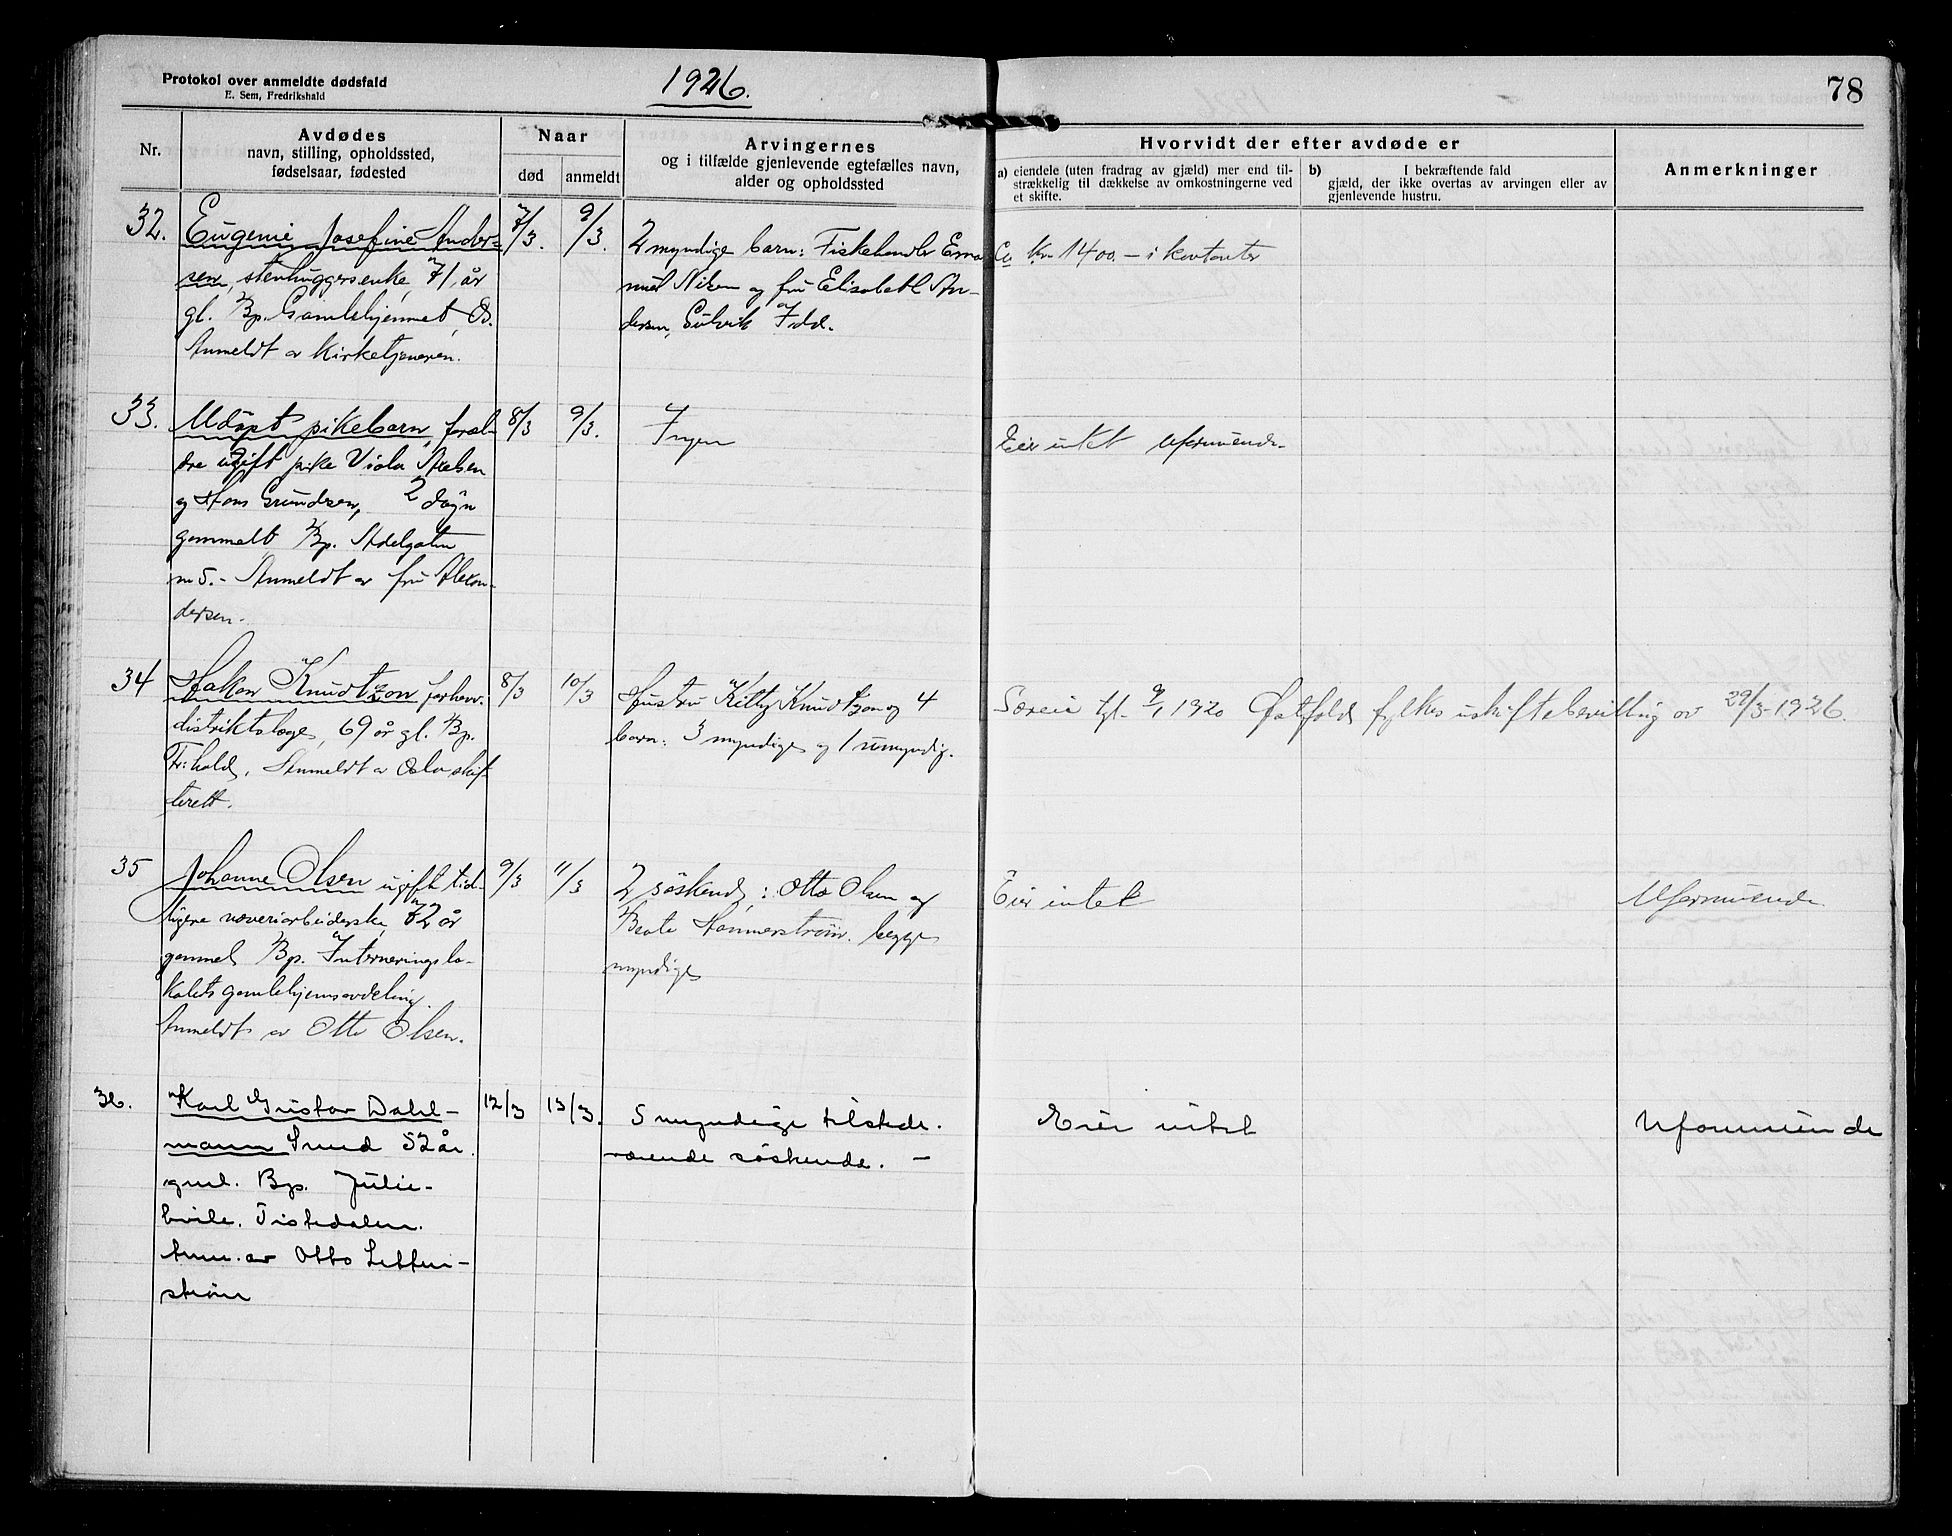 Protokol over anmeldte dødsfald
E. Sem, Fredrikshald
1926.
78
Nr.
Avdødes
navn, stilling, opholdssted,
fødselsaar, fødested
Naar
død
anmeldt
Arvingernes
og i tilfælde gjenlevende egtefælles navn,
alder og opholdssted
Hvorvidt der efter avdøde er
a) eiendele (uten fradrag av gjæld) mer end til-
strækkelig til dækkelse av omkostningerne ved
et skifte.
b) I bekræftende fald
gjæld, der ikke overtas av arvingen eller av
gjenlevende hustru.
Anmerkninger
32.
Eugenie Josefine Ander=
sen, stenhuggerenke, 71 år
gl. Bp. Gamlehjemmet, O.
Anmeldt av kirketjeneren.
7/3.
9/3.
2 myndige barn: Fiskehandler Ema
nuel Nilsen og fru Elisabeth An-
dersen, Idd.
Ca kr 1400.- i kontanter
33.
Udöpt pikebarn, forel-
dre ugift pike Viola Axelsen
og Hans Grundesen, 2 døgn
gammelt Bp. Adelgaten
nr 5.- Anmeldt av fru Alexan-
dersen.
8/3
9/3.
Ingen
Eier intet Uformuende
34
Hakon Knudtzon forhenv.
distriktslæge, 69 år gl. Bp.
Fr.hald, Anmeldt av Oslo skif-
terett.
8/3
10/3
Hustru Kitty Knudtzon og 4
barn: 3 myndige og 1 umyndig.
Særeie tgl. 9/1 1920 Østfold fylkes uskiftebevilling av 29/3-1926.
35
Johanne Olsen ugift tid-
ligere væveriarbeiderske, 72 år
gammel Bp. Interneringslo-
kalets gamlehjemsavdeling.
Anmeldt av Otto Olsen.
9/3
11/3
2 søskend: Otto Olsen og
Beate Hammerstrøm. begge
myndige
Eier intet
Uformuende
36.
Karl Gustav Dahl-
mann Lund 52 år.
gml. Bp. Julie-
hvile. Tistedalen.
Anm. av Otto Letten-
strøm
12/3
13/3.
5 myndige tilstede.
værende søskende. -
Eier intet
Uformuende